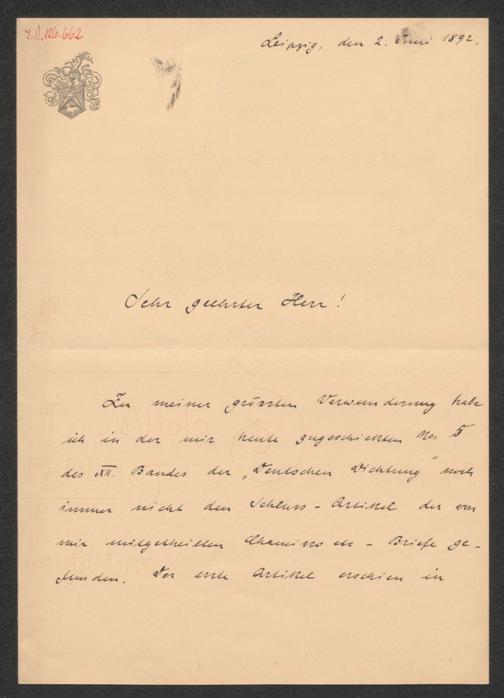 I.N. 126.662
Leipzig, den 2. Juni 1892.
Sehr geehrter Herr!
Zu meiner grössten Verwunderung habe
ich in der mir heute zugeschickten No. 5
des XII. Bandes der „Deutschen Dichtung" noch
immer nicht den Schluss-Artikel der von
mir mitgetheilten Chamisso etc-Briefe ge-
funden. Der erste Artikel erschien in